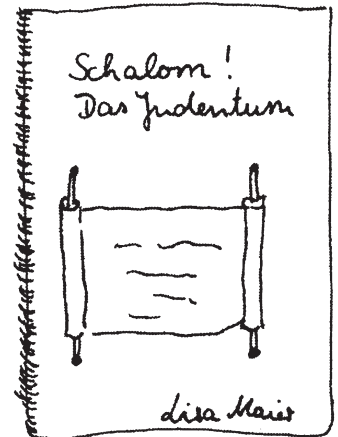 Schalom!
Das Judentum
Lisa Maier